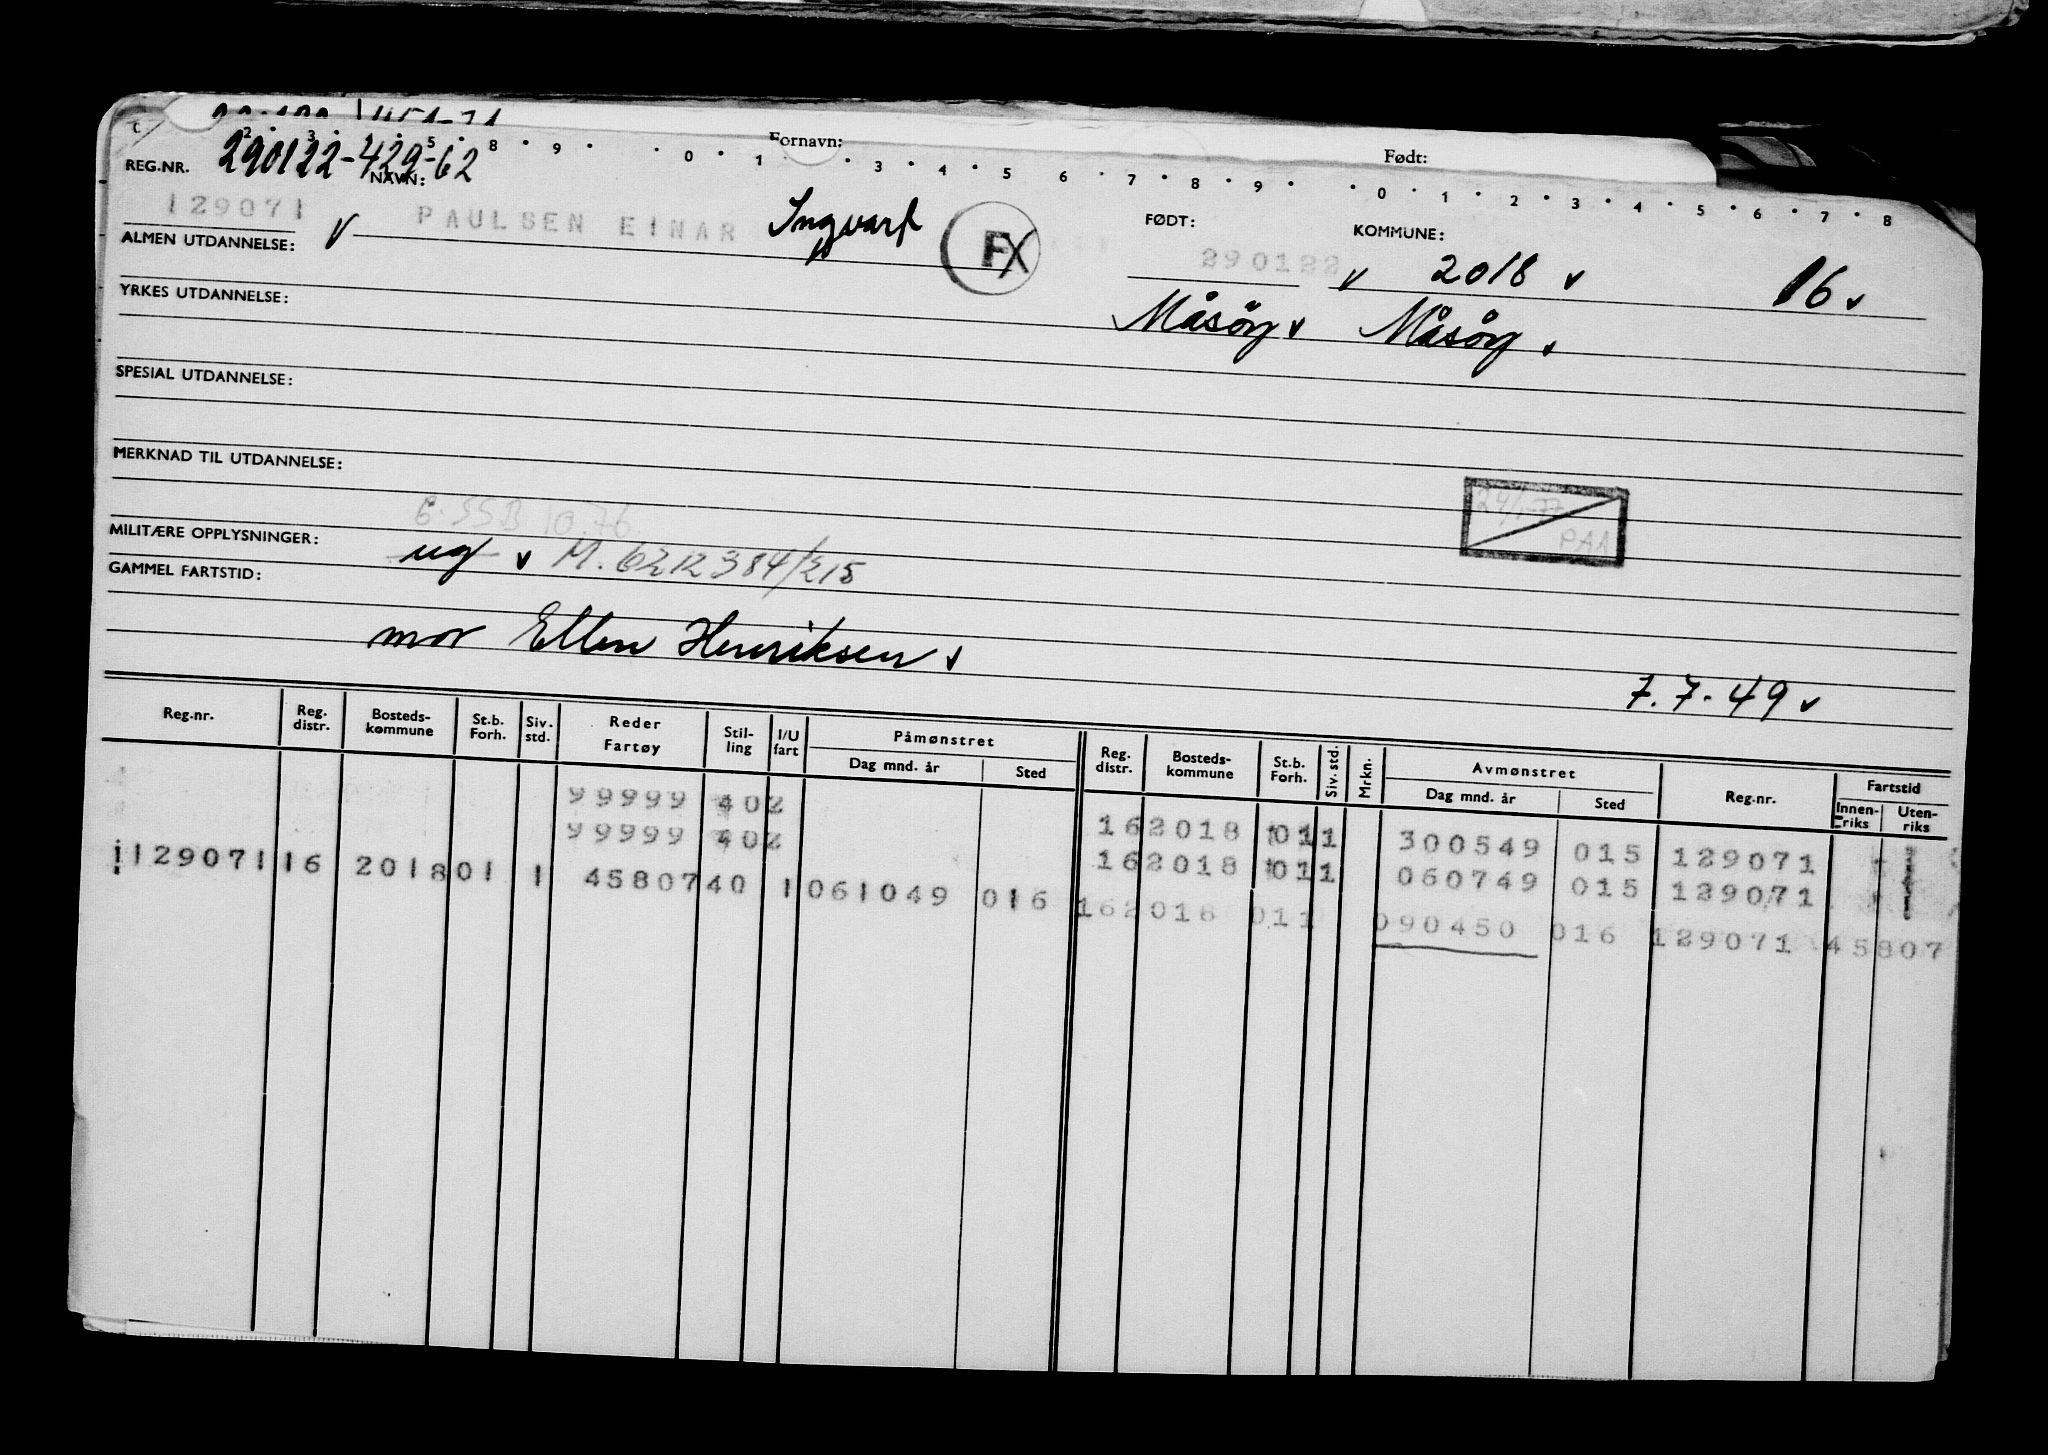 Fornavn:
Født:
REG.NR. 290122-429-62
NAVN:
129071 v PAULSEN EINAR Ingvart FX
FØDT: KOMMUNE:
290122 v 2018 v 16 v
Måsøy v Måsøy v
ALMEN UTDANNELSE:
YRKES UTDANNELSE:
SPESIAL UTDANNELSE:
MERKNAD TIL UTDANNELSE:
24/1-77
PAA
6.SSB 10.76
MILITÆRE OPPLYSNINGER: ug v M.6212384/215
GAMMEL FARTSTID:
mor Ellen Henriksen v
7.7-49 v
Reg.nr. Reg. distr. Bosteds-kommune St.b. Forh. Siv. std. Reder Fartøy Stil-ling I/U fart Påmønstret Dag mnd. år Sted Reg. distr. Bosteds-kommune St.b. Forh. Siv. std. Mrkn. Avmønstret Dag mnd. år Sted Reg.nr. Fartstid Innen-riks Uten-riks
99999 402 16 2018 01 1 300549 015 129071
99999 402 16 2018 01 1 060749 015 129071
129071 16 2018 01 1 45807 40 1 061049 016 16 2018 01 1 090450 016 129071 45807